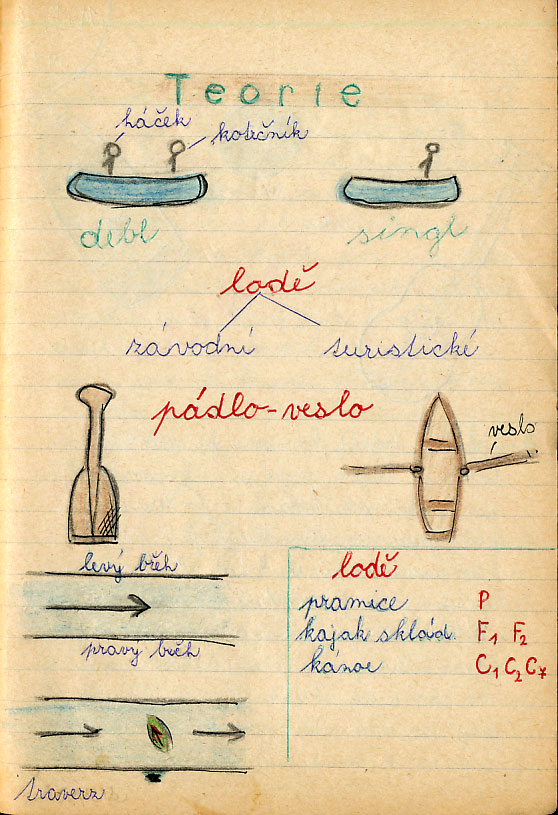 Teorie
háček
kotrčník
debl
singl
lodě
závodní
turistické
pádlo-veslo
veslo
levý břeh
pravý břeh
traverz
lodě
pramice P
kajak sklád. F1 F2
kánoe C1 C2 C7